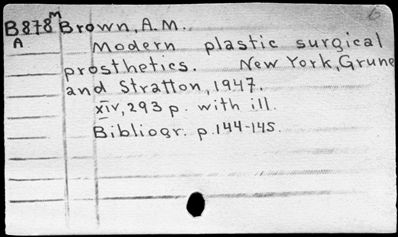 6
M
B878 Brown, A.M.
A
Modern plastic surgical
prosthetics. New York, Grune
and Stratton, 1947.
xiv, 293 p. with ill.
Bibliogr. p. 144-145.